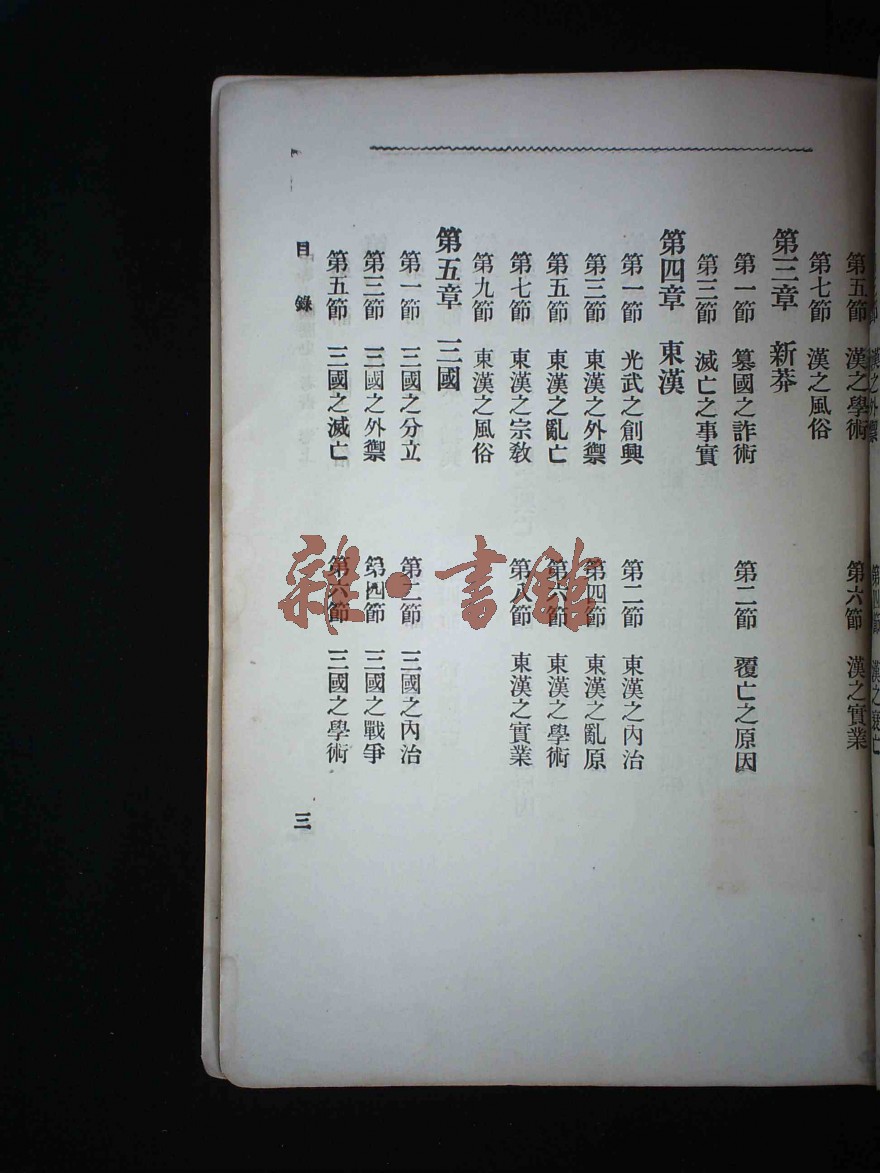 漢之外禦
第四節 漢之衰亡
第五節 漢之學術
第六節 漢之實業
第七節 漢之風俗
第三章 新莽
第一節 篡國之詐術
第二節 覆亡之原因
第三節 滅亡之事實
第四章 東漢
第一節 光武之創興
第二節 東漢之內治
第三節 東漢之外禦
第四節 東漢之亂原
第五節 東漢之亂亡
第六節 東漢之學術
第七節 東漢之宗敎
第八節 東漢之實業
第九節 東漢之風俗
第五章 三國
第一節 三國之分立
第二節 三國之內治
第三節 三國之外禦
第四節 三國之戰爭
第五節 三國之滅亡
第六節 三國之學術
目錄
三
雜·書館